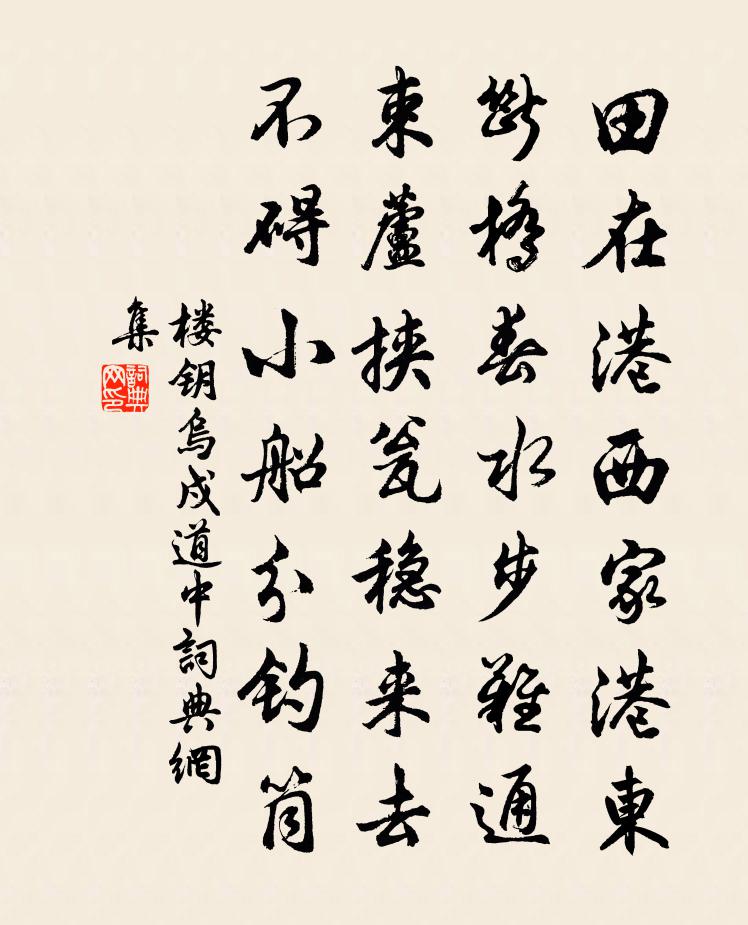 田在港西家港東
斷橋春水步難通
束蘆挾瓮稳来去
不碍小船分釣筒
楼钥烏戍道中詞典網
集
詞典网印